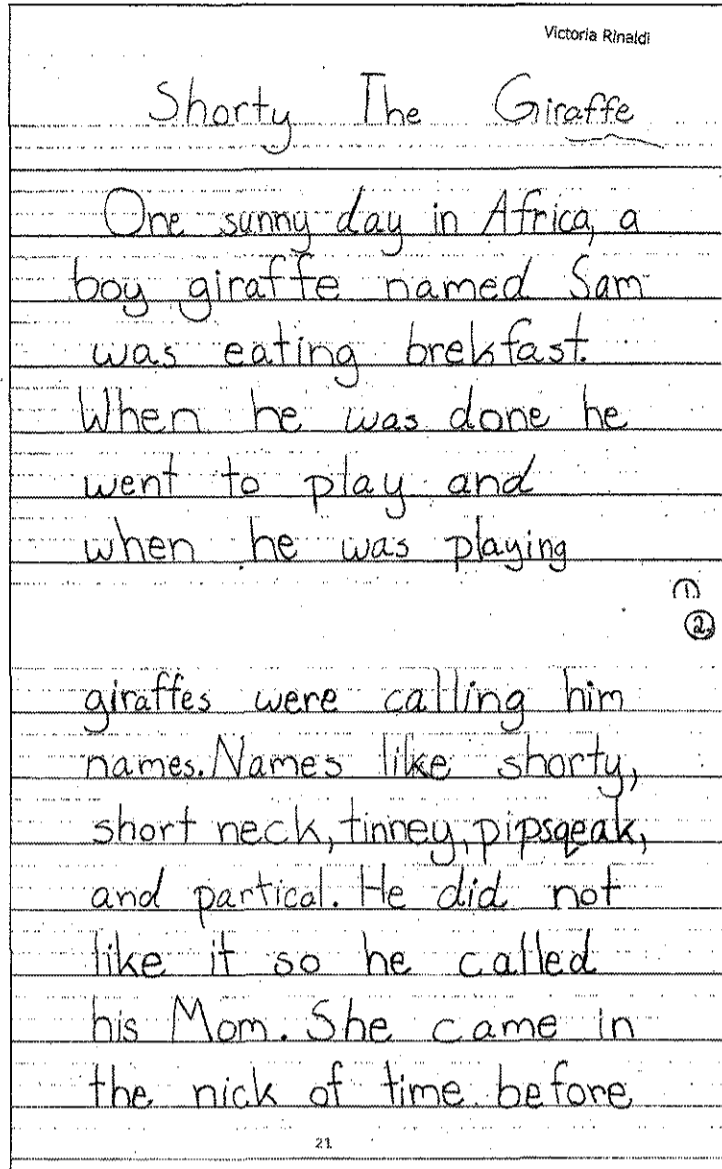 Victoria Rinaldi
Shorty The Giraffe
One sunny day in Africa, a
boy giraffe named Sam
was eating brekfast.
When he was done he
went to play and
when he was playing
1
2.
giraffes were calling him
names. Names like shorty,
short neck, tinney, pipsqeak,
and partical. He did not
like it so he called
his Mom. She came in
the nick of time before
21